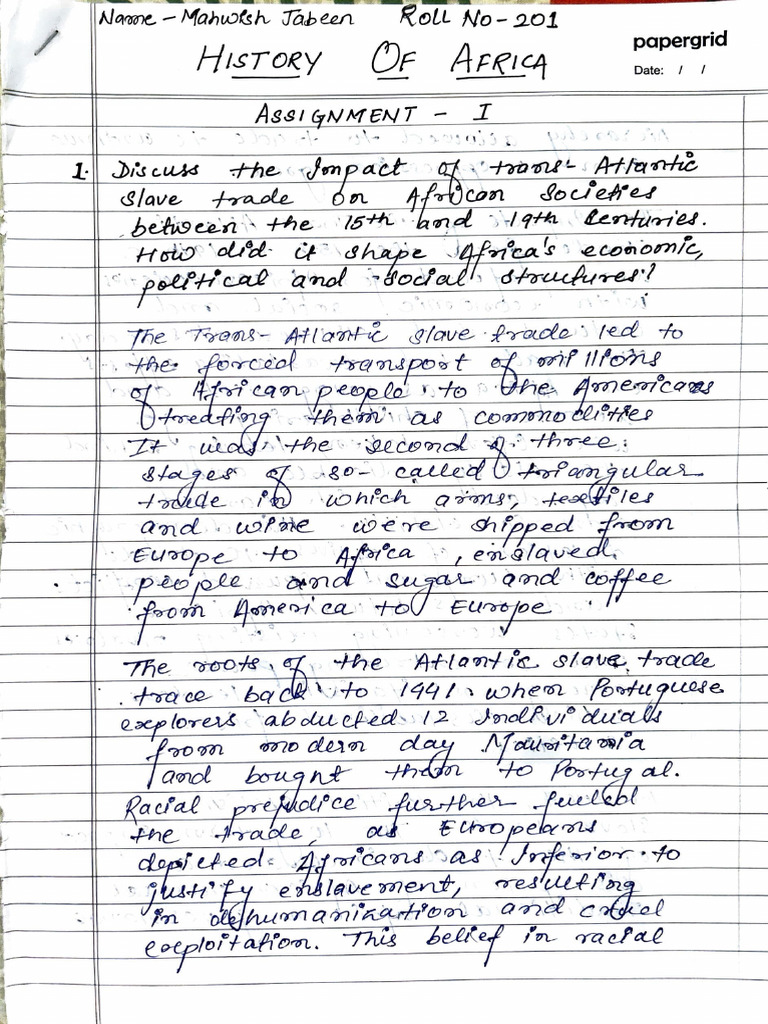 Name - Mahwish Jabeen Roll No - 201
papergrid
Date: / /
HISTORY OF AFRICA
ASSIGNMENT - I
1. Discuss the Impact of trans- Atlantic
slave trade on African Societies
between the 15th and 19th Centuries.
How did it shape Africa's economic,
political and social structures?
The Trans- Atlantic slave trade led to
the forced transport of millions
of African people to the Americans
treating them as commodities
It was the second of three
stages of so- called triangular
trade in which arms, textiles
and wine were shipped from
Europe to Africa , enslaved
people and sugar and coffee
from America to Europe
The roots of the Atlantic slave trade
trace back to 1441 when Portuguese
explorers abducted 12 Individuals
from modern day Mauritania
and bought them to Portugal.
Racial prejudice further fueled
the trade, as Europeans
depicted Africans as Inferior to
justify enslavement, resulting
in dehumanization and cruel
exploitation. This belief in racial